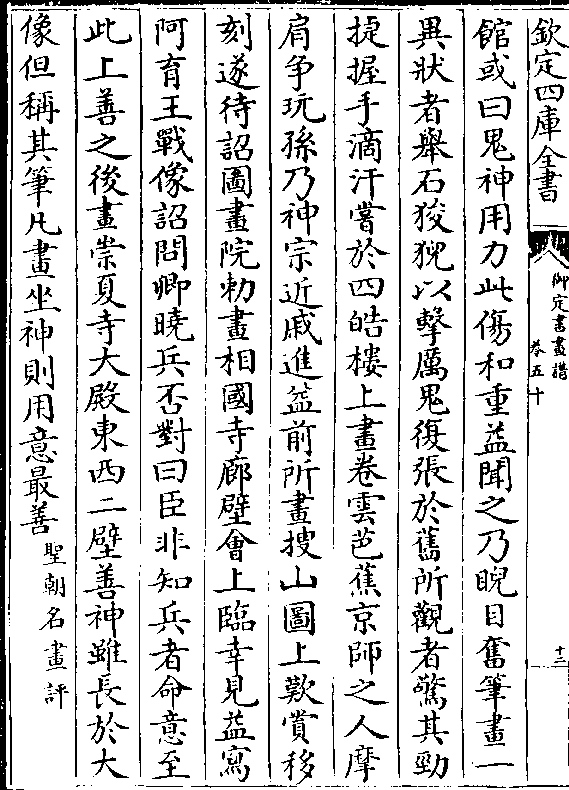 欽定四庫全書
御定書畫譜
卷五十
十三
館或曰鬼神用力此傷和重益聞之乃睨目奮筆畫一
異狀者舉石狻猊以擊厲鬼復張於舊所觀者驚其勁
捷握手滴汗嘗於四皓樓上畫卷雲芭蕉京師之人摩
肩争玩孫乃神宗近戚進益前所畫搜山圖上歎賞移
刻遂待詔圖畫院勅畫相國寺廊壁會上臨幸見益寫
阿育王戰像詔問卿曉兵否對曰臣非知兵者命意至
此上善之後畫崇夏寺大殿東西二壁善神雖長於大
像但稱其筆凡畫坐神則用意最善聖朝名畫評